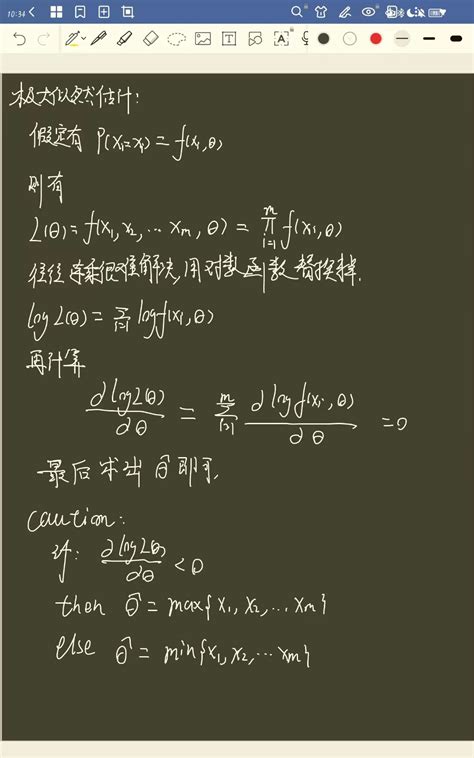 10:34
极大似然估计:
假定有 P(Xi=xi)=f(xi,θ)
则有
L(θ)=f(x₁,x₂,…xm,θ)=∏ᵢ₌₁ᵐ f(xi,θ)
往往连乘很难解决,用对数函数替换掉.
log L(θ)=∑ᵢ₌₁ log f(xi,θ)
再计算
∂log L(θ)/∂θ = ∑ᵢ₌₁ᵐ ∂log f(xi,θ)/∂θ =0
最后求出 θ̂ 即可.
caution:
if: ∂log L(θ)/∂θ <0
then θ̂=max{x₁,x₂,…xm}
else θ̂=min{x₁,x₂,…xm}